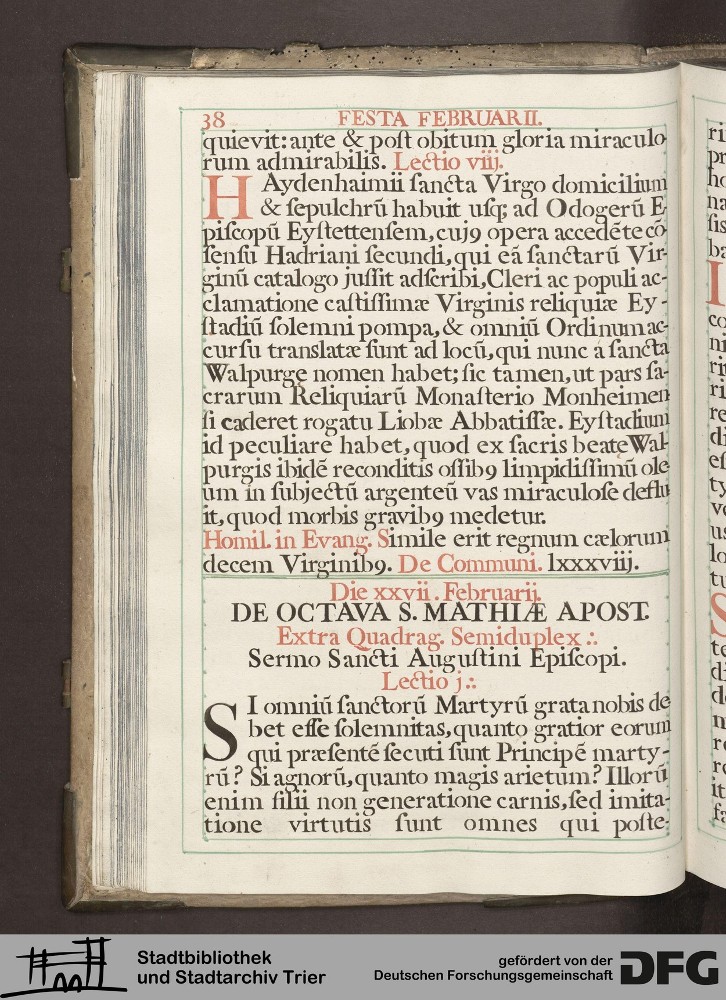 38 FESTA FEBRUARII.
quievit: ante & poſt obitum gloria miraculo
rum admirabilis. Lectio viij.
HAydenhaimii ſancta Virgo domicilium
& ſepulchrū habuit uſq; ad Odogerū E-
piſcopū Eyſtettenſem, cujꝰ opera accedēte cō
ſenſu Hadriani ſecundi, qui eā ſanctarū Vir-
ginū catalogo juſſit adſcribi, Cleri ac populi ac-
clamatione caſtiſſimæ Virginis reliquiæ Ey-
ſtadiū ſolemni pompa, & omniū Ordinum ac-
curſu translatæ ſunt ad locū, qui nunc a ſancta
Walpurge nomen habet; ſic tamen, ut pars ſa-
crarum Reliquiarū Monaſterio Monheimen
ſi caderet rogatu Liobæ Abbatiſſæ. Eyſtadium
id peculiare habet, quod ex ſacris beate Wal-
purgis ibidē reconditis oſſibꝰ limpidiſſimū ole
um in ſubjectū argenteū vas miraculoſe deflu
it, quod morbis gravibꝰ medetur.
Homil. in Evang. Simile erit regnum cælorum
decem Virginibꝰ. De Communi. lxxxviij.
Die xxvii. Februarij.
DE OCTAVA S. MATHIÆ APOST.
Extra Quadrag. Semiduplex ∴
Sermo Sancti Auguſtini Epiſcopi.
Lectio j ∴
SI omniū ſanctorū Martyrū grata nobis de
bet eſſe ſolemnitas, quanto gratior eorum
qui præſentē ſecuti ſunt Principē marty-
rū? Si agnorū, quanto magis arietum? Illorū
enim filii non generatione carnis, ſed imita-
tione virtutis ſunt omnes qui poſte-
Stadtbibliothek
und Stadtarchiv Trier
gefördert von der
Deutschen Forschungsgemeinschaft
DFG